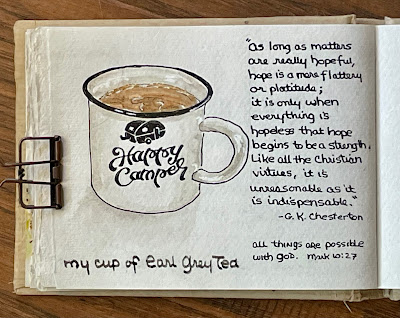 Happy
Camper
my cup of Earl Grey Tea
"as long as matters
are really hopeful,
hope is a mere flattery
or platitude;
it is only when
everything is
hopeless that hope
begins to be a strength.
Like all the Christian
virtues, it is
unreasonable as it
is indispensable."
-G. K. Chesterton
all things are possible
with God. Mark 10:27